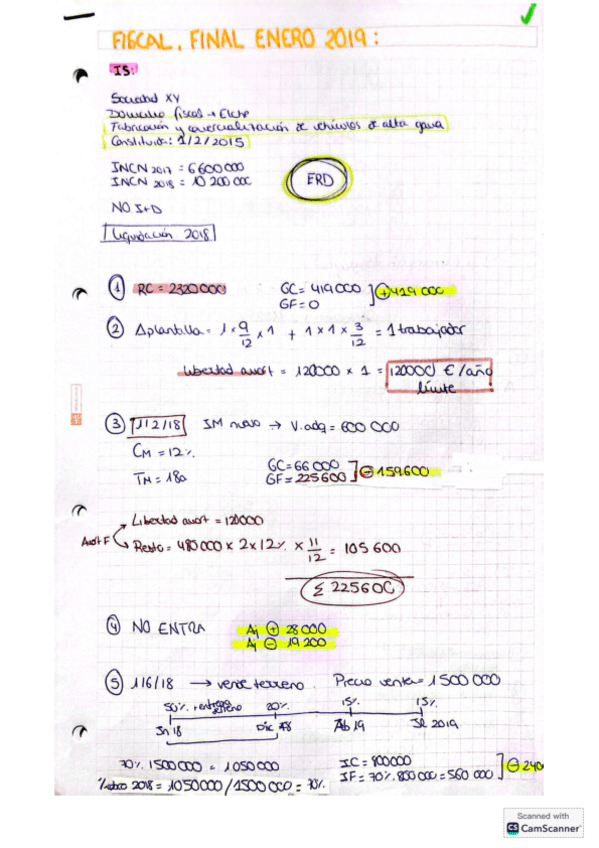 FISCAL. FINAL ENERO 2019:
IS:
Sociedad XY
Domicilio fiscal → Elche
Fabricación y comercialización de vehículos de alta gama
Constituida: 1/2/2015
INCN 2017 = 6600000
INCN 2018 = 10 200 000
ERD
NO I+D
Liquidación 2018
① RC = 2320000 GC = 419000 GF = 0 ⊕ 419 000
② Δ plantilla = 1 × 9/12 × 1 + 1 × 1 × 3/12 = 1 trabajador
Libertad amort = 120000 × 1 = 120000 € / año límite
③ 1/2/18 IM nuevo → V.adq = 600 000
CM = 12%
TM = 18a
GC = 66 000
GF = 225600
⊖ 159.600
Amort F
Libertad amort = 120000
Resto = 480 000 × 2 × 12% × 11/12 = 105 600
Σ 225600
④ NO ENTRA Aj ⊕ 28 000
Aj ⊖ 19 200
⑤ 1/6/18 → vende terreno. Precio venta = 1 500 000
50% + entrega terreno 20% 15% 15%
Jn 18 Dic 18 Ab 19 Jl 2019
70% 1500 000 = 1 050000
% cobro 2018 = 1050000 / 1500 000 = 70%
IC = 800000
IF = 70% 800 000 = 560 000
⊖ 240
Scanned with
CS CamScanner